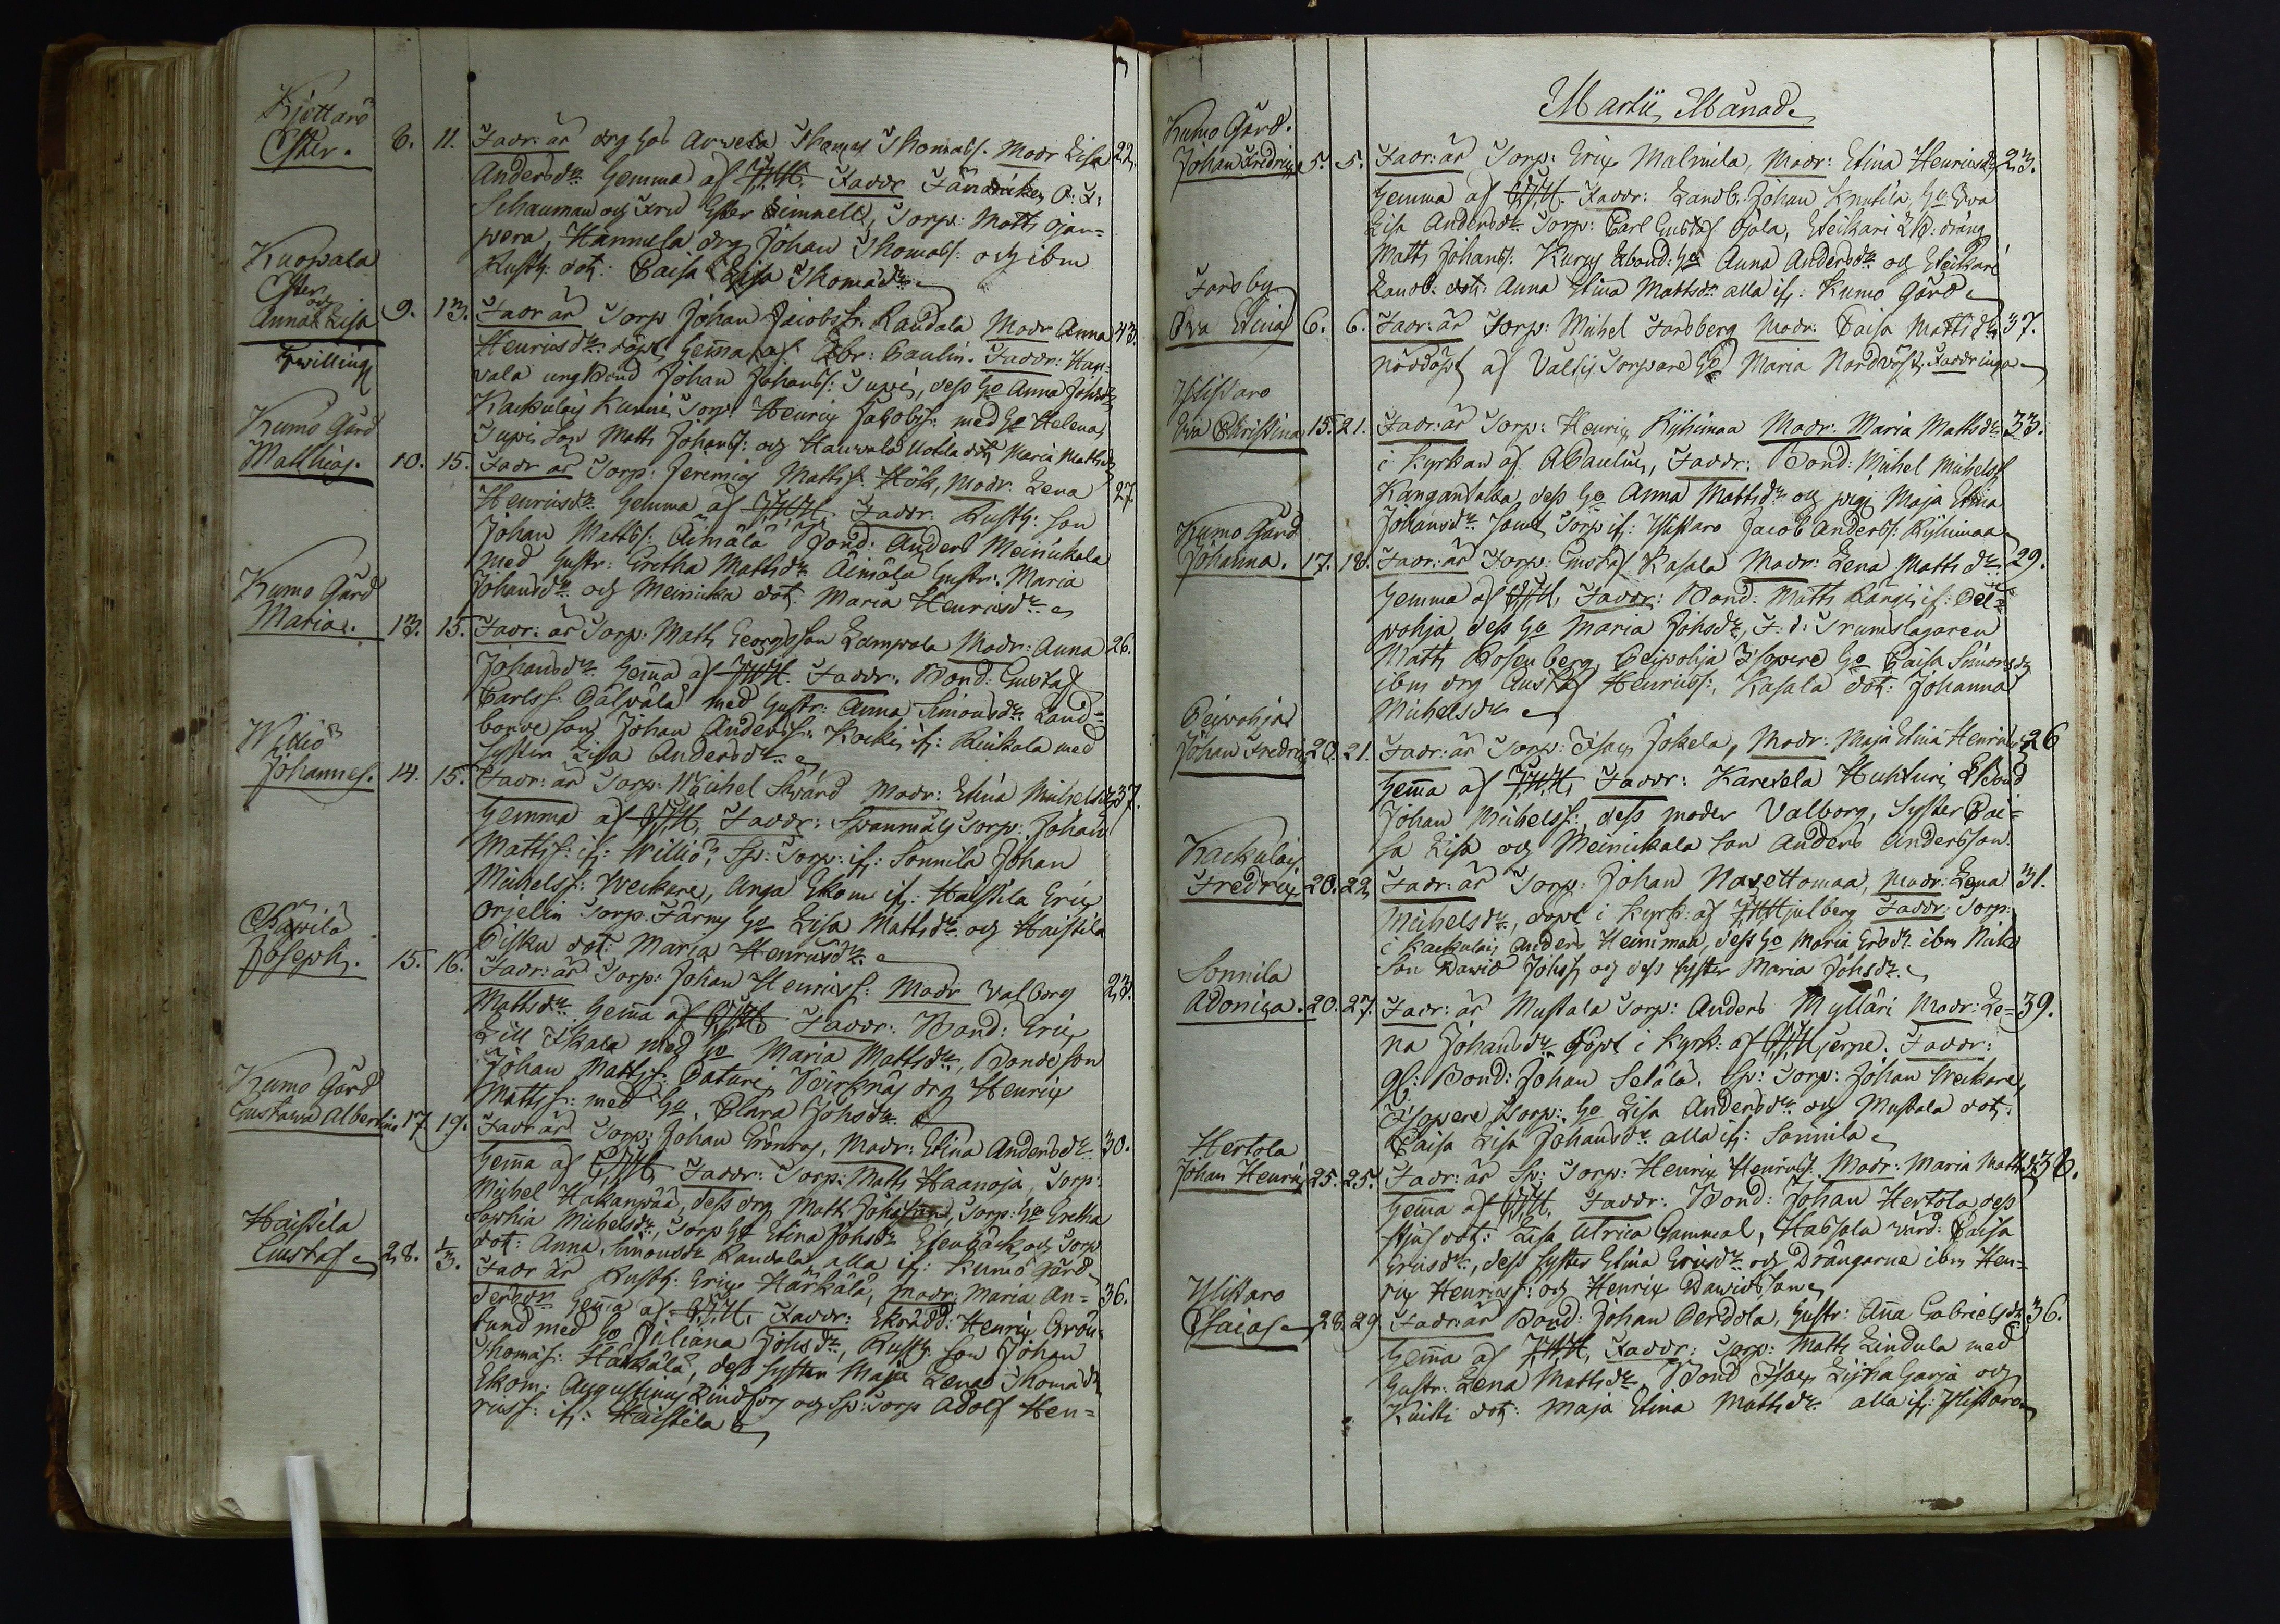 Kjettarö
Ester. 8. 11. Fadr: är drg hos Arwela Thomas Thomass. Modr Lisa 22.
Andersdr. hemma af Faddr Fändricken
Schauman och Fru Ester Gimnell, Torp: Matts Ojan-
pera, Hannula drg Johan Thomass: och ibm
Rusth: dot: Caisa Lisa Thomasdr
Kuopala
Ester
och
Anna Lisa 9. 13. Fadr är Torp Johan Jacobss: Raudala Modr Anna 43.
Twilling
Henricsdr döpt hemma af Abr: Paulin. Faddr: Han-
vala ung Bond Johan Johanss: Tupi, dess ho Anna Johsdr
Kackulais Kunni, Torp: Henric Jacobss: med ho Helena,
Tupi Son Matts Johanss: och Hanvala Uotila dot: Maria Mattsdr
Kumo Gård
Matthias. 10. 15. Fadr är Torp: Jeremias Mattss: Hök, Modr: Lena 27.
Henricsdr hemma af Faddr: Rusth: son
Johan Mattss: Äimälä Bond: Anders Meinikala
med hustr: Gretha Mattsdr Äimälä hustr: Maria
Johansdr och Meinikala dot: Maria Henricsdr
Kumo Gård
Maria. 13. 15. Fadr: är Torp: Matts Georgsson Lampola Modr: Anna 26.
Johansdr hema af Faddr: Bond: Gustaf
Carlss: Pälpälä med hustr: Anna Simonsdr Land-
borde son Johan Anderss: Kocki, if: Reikala med
Syster Lisa Andersdr
Williö
Johannes. 14. 15. Fadr: är Torp: Michel Swärd Modr: Stina Michelsdr 37.
hemma af Faddr: Swanmäly Torp: Johan
Mattss: if: Williö, Sp: Torp: if: Sonnila Johan
Michelss: Weckara, Anga Ekom if: Haistila Eric
Orjelin Torp: Färny ho Lisa Mattsdr och Haistila
Pisku dot: Maria Henricsdr
Pawila
Joseph. 15. 16. Fadr: är Torp: Johan Henricss: Modr Valborg 23.
Mattsdr. hema af Faddr: Bond: Eric
Lill Ikala med ho Maria Mattsdr, Bonde son
Johan Mattss: Paturi, Björknäs drg Henric
Mattss: med ho Clara Johsdr
Kumo Gård
Gustawa Albertina 17. 19. Fadr är Torp: Johan Grönros, Modr: Stina Andersdr 30.
hema af Faddr: Torp: Matts Haanoja, Torp:
Michel Hakanpää, dess drg Matts Johansson, Torp: ho Gretha
Sophia Michelsdr, Torp ho Stina Johsdr Stenbäck, och Torp
dot: Anna Simonsdr Randala, alla if: Kumo Gård
Haistila
Gustaf 28. 1/3. Fadr är Rusth: Eric Härkälä, Modr: Maria An- 36.
dersdr hema af Faddr: Skrädd: Henric Grön-
lund med ho Juliana Johsdr, Rusth: son Johan
Thomass: Härkälä, dess syster Maja Lena Thomasdr
Ekom: Augustinus Lindfors och Sp: Torp Adolf Hen-
ricss: if: Haistila
Martii Månad
Kumo Gård.
Johan Fredric 5. 5. Fadr: är Torp: Eric Malmila, Modr: Stina Henricsdr 23.
hemma af Faddr: Landb: Johan Knutila, ho Eva
Lisa Andersdr Torp: Carl Gustaf Ojala, Steikari LB: dräng
Matts Johanss: Kurcy Ebond: ho Anna Andersdr och Steikari
Landb: dot: Anna Stina Mattsdr alla if: Kumo Gård
Forsby
Eva Stina 6. 6. Fadr: är Torp: Michel Forsberg Modr: Caisa Mattsdr 37.
nöddöpt af Valkis Torpare ho Maria Nordvist. Faddr inga
Ylistaro
Eva Christina 15. 21. Fadr: är Torp: Henric Ryhimaa Modr: Maria Mattsdr 33.
i Kyrkan af A Paulin, Faddr: Bond: Michel Michelss
Kangantaka, dess ho Anna Mattsdr och pigi Maja Stina
Johansdr samt Torp if: Ylistaro Jacob Anderss: Ryhimaa
Kumo Gård
Johanna. 17. 18. Fadr: är Torp: Gustaf Kasala Modr: Lena Mattsdr 29.
hemma af Faddr: Bond: Matts Rångi, if: Pei-
pohja, dess ho Maria Johsdr, F: d: Trumslagaren
Matts Rosenberg, Peipohja Isopere ho Caisa Simonsdr
ibm drg Gustaf Henricss:, Kasala dot: Johanna
Michelsdr
Peipohja
Johan Fredric 20. 21. Fadr: är Torp: Isac Jokela, Modr: Maja Stina Henricsdr 26
hema af Faddr: Karetela Huhturi, EBond
Johan Michelss:, dess moder Valborg, Syster Cai-
sa Lisa och Meinikala son Anders Andersson
Kackulais
Fredric 20. 22 Fadr: är Torp: Johan Navettomaa, Modr: Lena 31.
Michelsdr, döpt i Kyrk: af Hjulberg Faddr: Torp:
i Kackulais Anders Heinimaa, dess ho Maria Ersdr ibm Nick
son Dawid Johss och dess syster Maria Johsdr
Sonnila
Adonica. 20. 27. Fadr: är Mustala Torp: Anders Mylläri Modr: Le- 39.
na Johansdr döpt i Kyrk: af Hjerpe. Faddr:
Gl: Bond: Johan Setälä, Sp: Torp: Johan Weckara,
Isopere Torp: ho Lisa Andersdr och Mustala dot:
Caisa Lisa Johansdr alla if: Sonnila
Hertola
Johan Henric 25. 25. Fadr: är Sp: Torp: Henric Henricss: Modr: Maria Mattsdr 38.
hema af Faddr: Bond: Johan Hertola dess
stjuf dot: Lisa Ulrica Gammal, Habsala värd: Caisa
Ericsdr, dess syster Stina Ericsdr och Drängarne ibm Hen-
ric Henricss: och Henric Dawidsson
Ylistaro
Esaias 28. 29. Fadr: är Bond: Johan Perdola, hustr: Ana Gabrielsdr 36.
hema af Faddr: Torp: Matts Lindula med
hustr: Lena Mattsdr, Bond Isac Lijka harja och
Knitti dot: Maja Stina Mattsdr alla if: Ylistaro